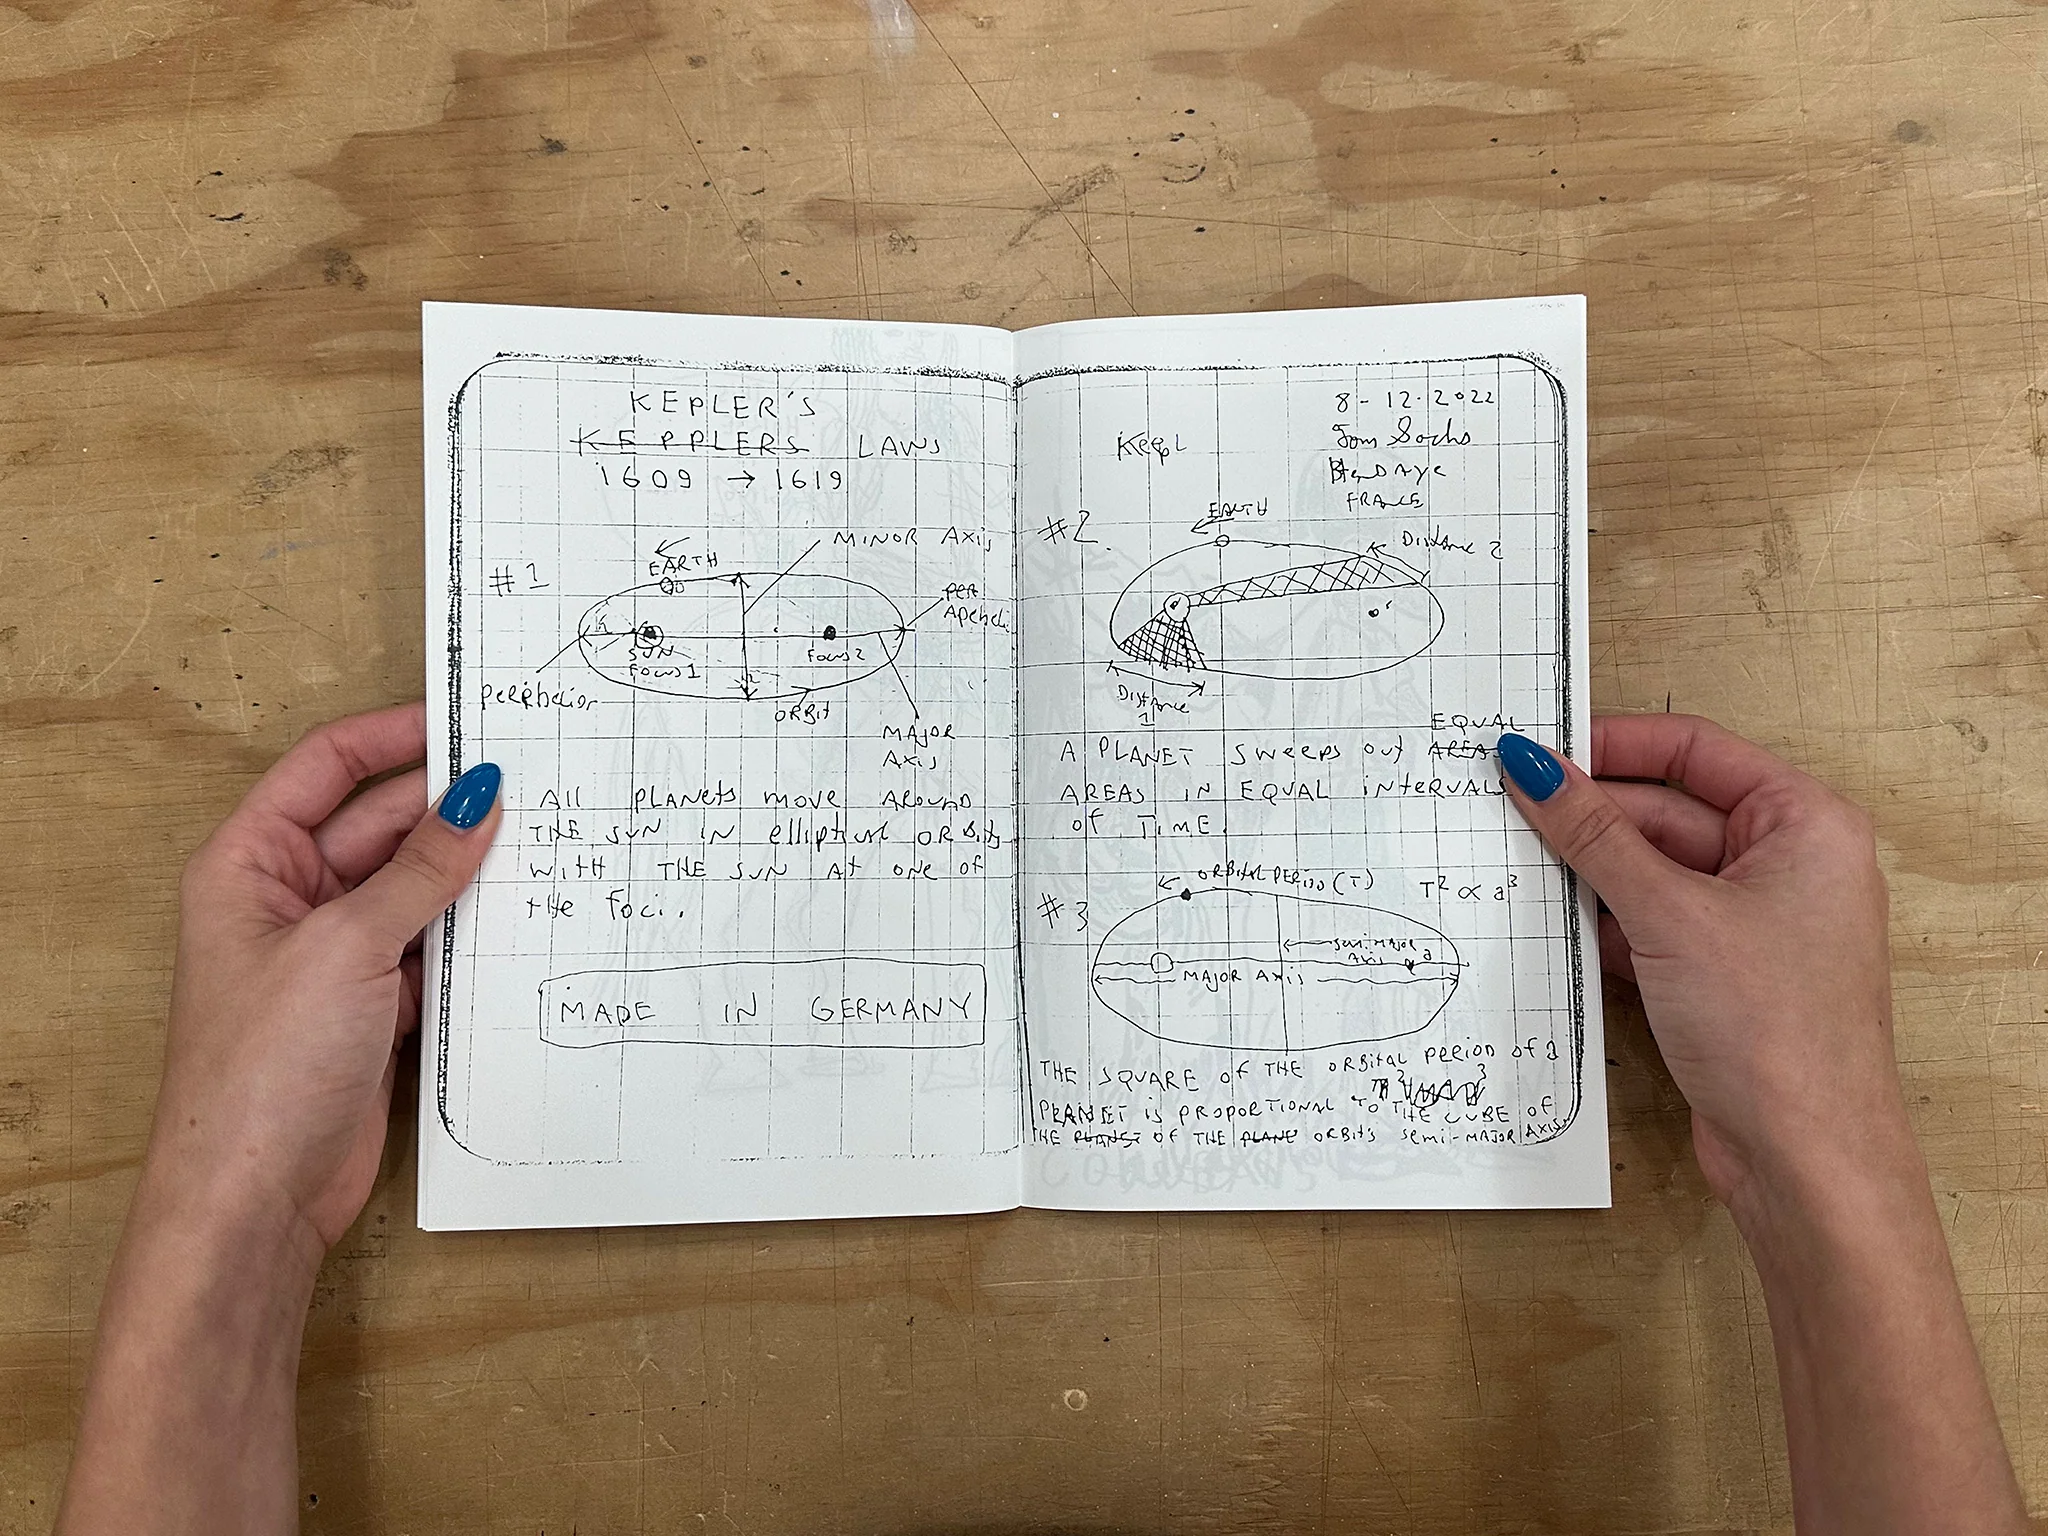 KEPLER'S
KEPPLERS LAWS
1609 → 1619
#1
MINOR AXIS
EARTH
SUN
FOCUS 1
FOCUS 2
ORBIT
MAJOR
AXIS
All PLANETS MOVE AROUND
THE SUN IN elliptical ORBITS
WITH THE SUN AT ONE OF
THE FOCI.
MADE IN GERMANY
8-12-2022
Tom Sachs
FRANCE
Kepl
#2
EARTH
Distance 2
Distance
1
EQUAL
A PLANET SWEEPS OUT AREAS
AREAS IN EQUAL INTERVALS
OF TIME.
#3
ORBITAL PERIOD (T)
T² ∝ a³
SEMI MAJOR
AXIS a
MAJOR AXIS
THE SQUARE OF THE ORBITAL PERIOD OF A
PLANET IS PROPORTIONAL TO THE CUBE OF
THE PLANET OF THE PLANE ORBITS SEMI-MAJOR AXIS